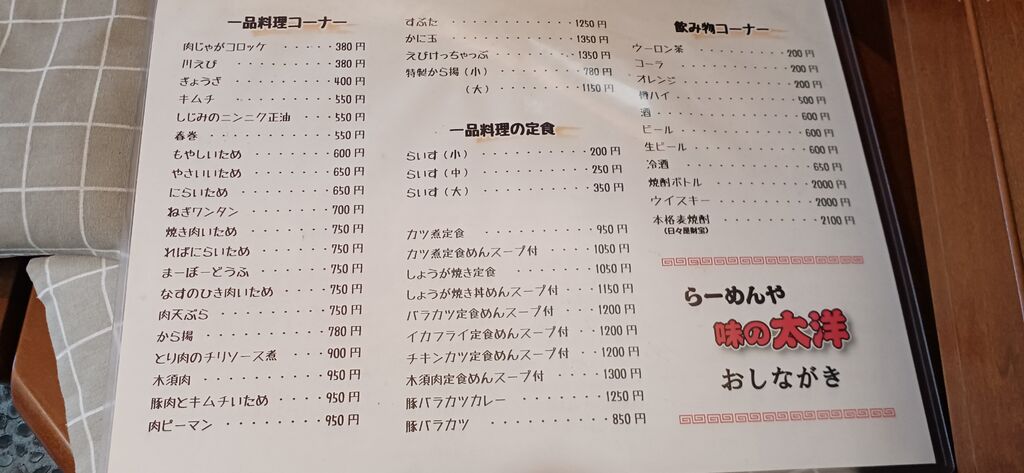 一品料理コーナー
肉じゃがコロッケ ・・・・・・380円
川えび ・・・・・・・・・380円
ぎょうざ ・・・・・・・・・400円
キムチ ・・・・・・・・・550円
しじみのニンニク正油 ・・・550円
春巻 ・・・・・・・・・・550円
もやしいため ・・・・・・・600円
やさいいため ・・・・・・・650円
にらいため ・・・・・・・・650円
ねぎワンタン ・・・・・・・700円
焼き肉いため ・・・・・・・750円
ればにらいため ・・・・・・750円
まーぼーどうふ ・・・・・・750円
なすのひき肉いため ・・・・750円
肉天ぷら ・・・・・・・・・750円
から揚 ・・・・・・・・・・780円
とり肉のチリソース煮 ・・・900円
木須肉 ・・・・・・・・・・950円
豚肉とキムチいため ・・・・950円
肉ピーマン ・・・・・・・・950円
すぶた ・・・・・・・・・・1250円
かに玉 ・・・・・・・・・・1350円
えびけっちゃっぷ ・・・・・1350円
特製から揚（小） ・・・・・・780円
（大） ・・・・・・1150円
一品料理の定食
らいす（小） ・・・・・・・・200円
らいす（中） ・・・・・・・・250円
らいす（大） ・・・・・・・・350円
カツ煮定食 ・・・・・・・・・950円
カツ煮定食めんスープ付 ・・・1050円
しょうが焼き定食 ・・・・・・1050円
しょうが焼き丼めんスープ付 ・・1150円
バラカツ定食めんスープ付 ・・・1200円
イカフライ定食めんスープ付 ・・1200円
チキンカツ定食めんスープ付 ・・1200円
木須肉定食めんスープ付 ・・・・1300円
豚バラカツカレー ・・・・・・1250円
豚バラカツ ・・・・・・・・・850円
飲み物コーナー
ウーロン茶 ・・・・・・・・200円
コーラ ・・・・・・・・・・200円
オレンジ ・・・・・・・・・200円
樽ハイ ・・・・・・・・・・500円
酒 ・・・・・・・・・・・・600円
ビール ・・・・・・・・・・600円
生ビール ・・・・・・・・・600円
冷酒 ・・・・・・・・・・・650円
焼酎ボトル ・・・・・・・・2000円
ウイスキー ・・・・・・・・2000円
本格麦焼酎 ・・・・・・・・2100円
（日々是財宝）
らーめんや
味の太洋
おしながき